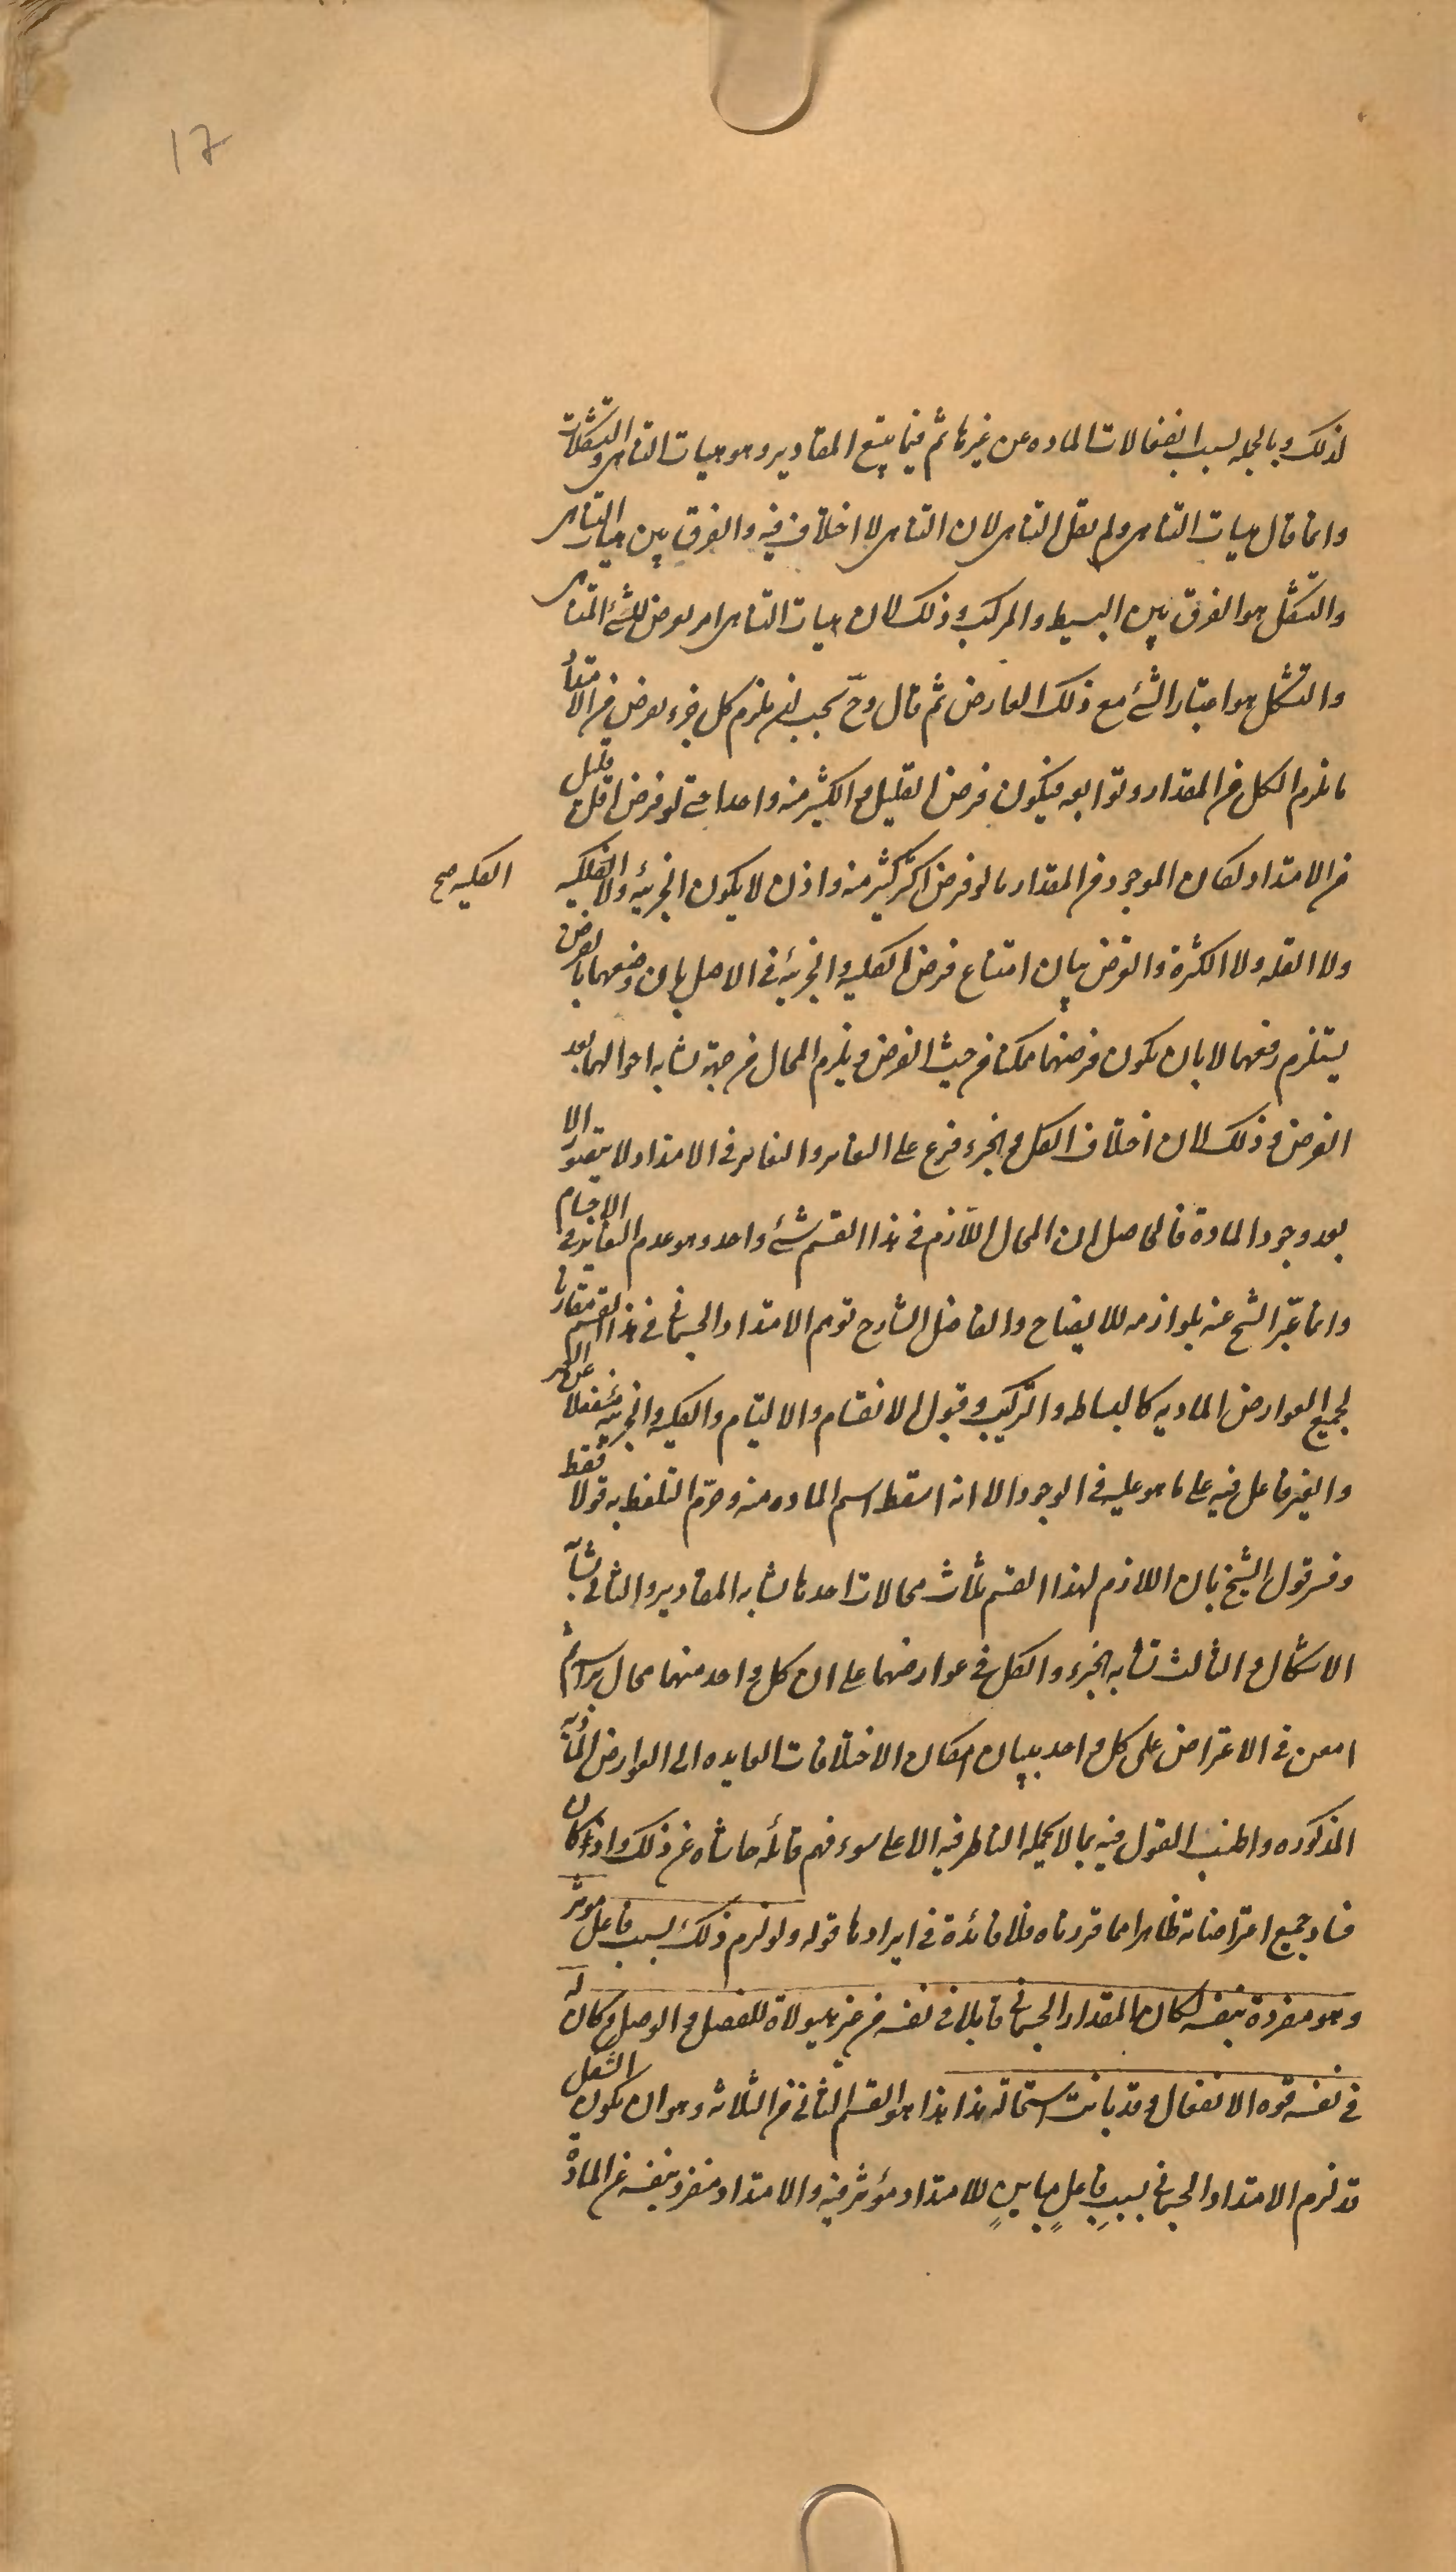 17
لذلك وبالجمله لسبب انفعالات الماده عن غيرها ثم فيما يتبع المقادير وهو هيات التناهى والتشكلات
وانما قال هيات التناهى ولم يقل التناهى لان التناهى لا اختلاف فيه والفرق بين هيات التناهى
والتشكل هو الفرق بين البسيط والمركب وذلك لان هيات التناهى امر يعرض للشئ المتناهى
والتشكل هو اعتبار الشئ مع ذلك العارض ثم قال وح يجب ان يلزم كل جزء يعرض من الامتداد
ما يلزم الكل من المقدار وتوابعه فيكون فرض القليل والكثير منه واحدا حتى لو فرض اقل قليل
من الامتداد لكان الموجود من المقدار ما لو فرض اكثر كثير منه واذن لا يكون الجزئية ولا الفلكيه
الكليه صح
ولا القله ولا الكثرة والغرض بيان امتناع فرض الكليه والجزئية فى الاصل بان وضعهما بالفرض
يستلزم رفعهما لا بان يكون فرضهما ممكنا من حيث الفرض ويلزم المحال من جهة تشابه احوالهما بعد
الفرض وذلك لان اختلاف الكل والجزء فرع على التغاير والتغاير فى الامتداد لا يتصور الا
بعد وجود المادة فالحاصل ان المحال اللازم فى هذا القسم شئ واحد وهو عدم التغاير فى الاجسام
وانما عبّر الشيخ عنه بلوازمه للايضاح والفاضل الشارح توهم الامتداد الجسمانى فى هذا القسم مقارنا
لجميع العوارض الماديه كالبساطه والتركيب وقبول الانقسام والالتيام والكليه والجزئيه منفعلا عن الغير
والغير فاعل فيه على ما هو عليه فى الوجود الا انه اسقط اسم الماده منه وحرّم التلفظ به قولا فقط
وفسر قول الشيخ بان اللازم لهذا القسم ثلاث محالات احدها تشابه المقادير والثانى تشابه
الاشكال والثالث تشابه الجزء والكل فى عوارضهما على ان كل واحد منهما محال براسه ثم
امعن فى الاعتراض على كل واحد ببيان امكان الاختلافات العايده الى العوارض الماديه
المذكوره واطنب القول فيه بما لا يحمله الناظر فيه الا على سوء فهم قائله حاشاه عن ذلك واذ كان
فساد جميع اعتراضاته ظاهرا مما قررناه فلا فائدة فى ايرادها قوله ولو لزم ذلك لسبب فاعل موثر
وهو مفرد بنفسه لكان المقدار الجسمانى قابلا فى نفسه من غير هيولاه للفصل والوصل وكان له
فى نفسه قوه الانفعال وقد بانت استحاله هذا هذا هو القسم الثانى من الثلاثه وهو ان يكون الشكل
قد لزم الامتداد الجسمانى بسبب فاعل مباين للامتداد مؤثر فيه والامتداد منفرد بنفسه عن المادة